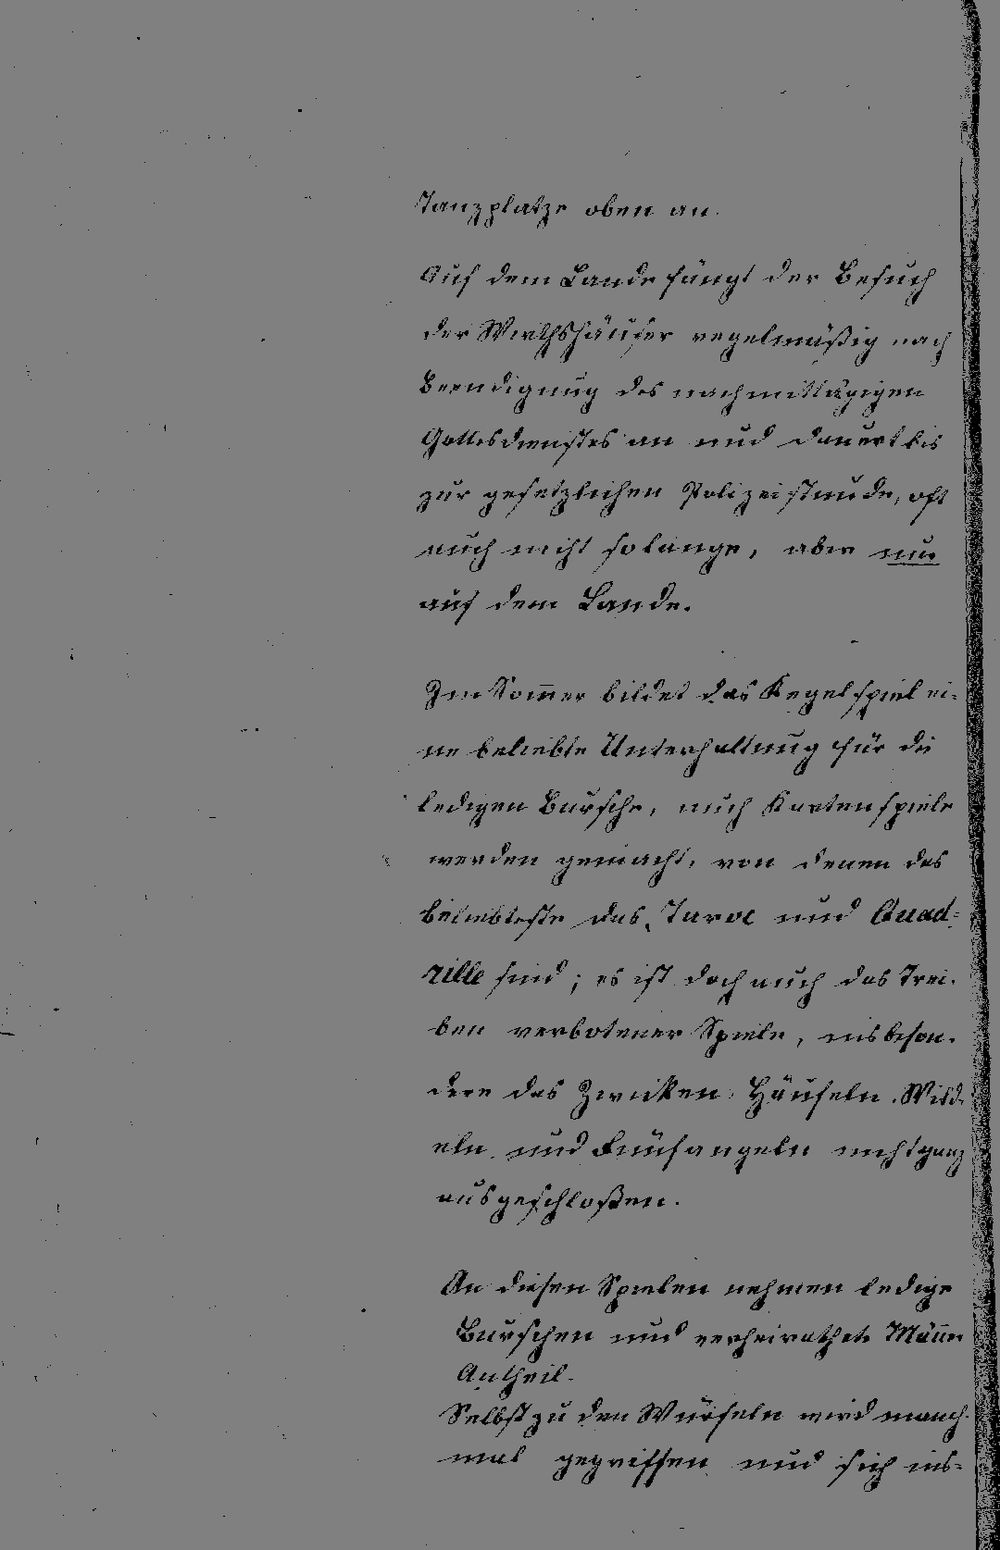 Tanzplatze oben an.
Auf dem Lande fängt der Besuch
der Wirthshäuser regelmäßig nach
Beendigung des nachmittägigen
Gottesdienstes an und dauert bis
zur gesetzlichen Polizeistunde, oft
auch nicht solange, aber nur
auf dem Lande.
Im Som̅er bildet das Kegelspiel ei-
ne beliebte Unterhaltung für die
ledigen Bursche, auch Kartenspiele
werden gemacht, von denen das
beliebteste das Taroc und Quad-
rille sind; es ist doch auch das Trei-
ben verbotener Spiele, insbeson-
dere das Zwicken, Häufeln, Wild-
eln und Fünfangeln nicht ganz
ausgeschloßen.
An diesen Spielen nehmen ledige
Burschen und verheirathete Män̅er
Antheil.
Selbst zu den Würfeln wird manch-
mal gegriffen und sich ins-